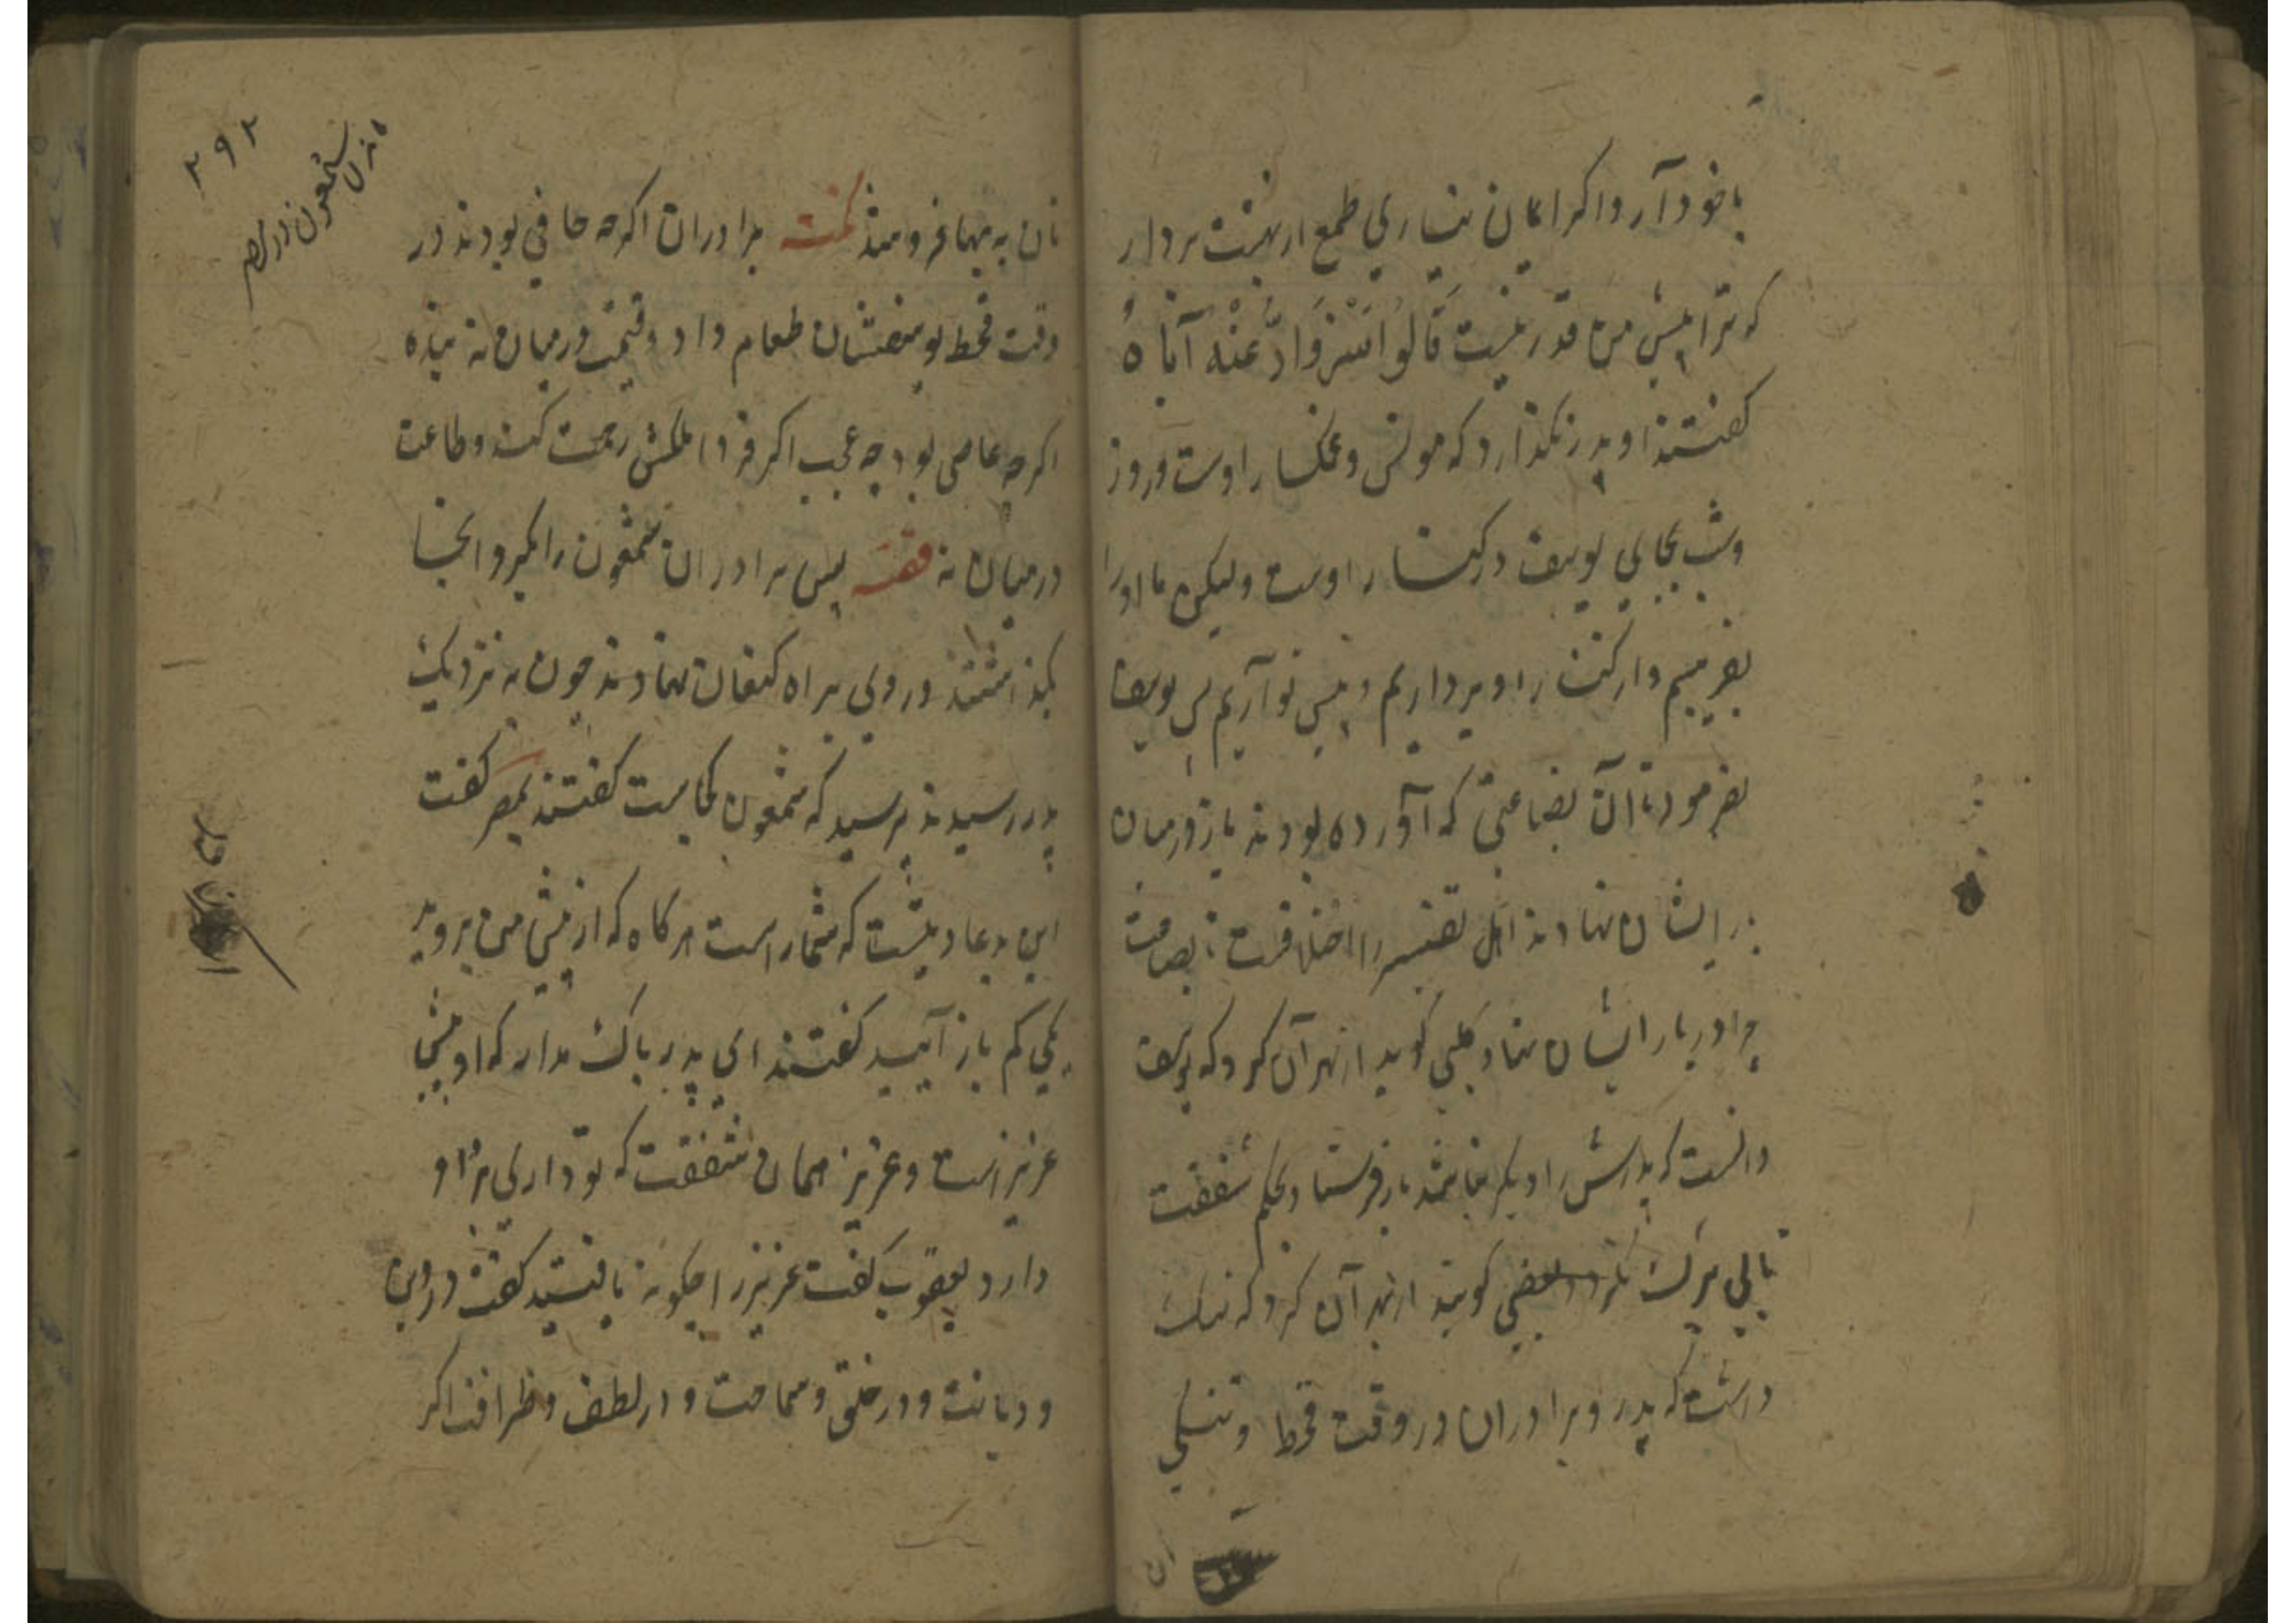 با خود آر و اکر ایمان نیاری طمع از بهشت بردار
که ترا پیش من قدر نیست قَالُوا سَنُرَاوِدُ عَنْهُ أَبَاهُ
کفتند او پدر نکذارد که مونس و غمکسار اوست و روز
و شب بجای یوسف در کنار اوست ولیکن ما اورا
بفریبیم و از کنار او برداریم و پیش تو آریم پس یوسف
بفرمود تا آن بضاعتی که آورده بودند باز در میان
بار ایشان نهادند اهل تفسیر را اختلافست تا بضاعت
چرا در بار ایشان نهاد کلبی کوید از بهر آن کرد که یوسف
دانست که پدرش را دیکر نباشد باز فرستاد بحکم شفقت
کویند از بهر آن کرد که ننک
داشت که پدر و برادران در وقت قحط و تنکی
نان به بها فروشد نکته برادران اکرچه جافی بودند در
وقت قحط یوسفشان طعام داد و قیمت در میان نه بنده
اکرچه عاصی بود چه عجب اکر فردا ملکش رحمت کند و طاعت
در میان نه قصه پس برادران شمعون را بمکر و آنجا
بکذاشتند و روی براه کنعان نهادند چون به نزدیک
پدر رسیدند پرسید که شمعون کجاست کفتند بمصر کفت
این بد عادتیست که شما راست هرکاه که از پیش من بروید
یکی کم باز آیید کفتند ای پدر باک مدار که او پیش
عزیز است و عزیز همان شفقت که تو داری بر او
دارد یعقوب کفت عزیز را چکونه یافتید کفتند در دین
و دیانت و در خلق و سماحت و در لطف و ظرافت اکر
۲۹۲
شمعون در مصر